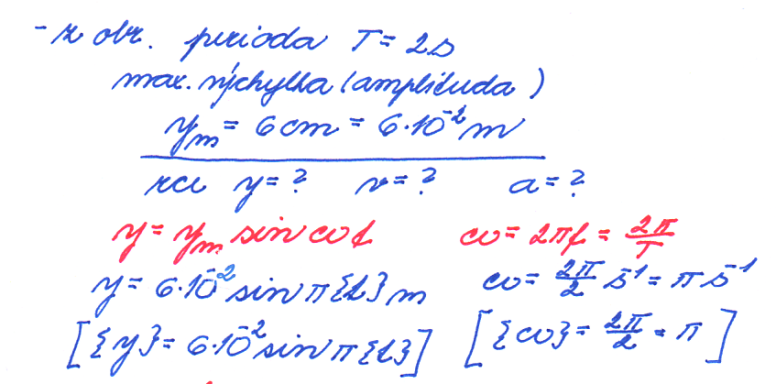 - z obr. perioda T = 2s
max. výchylka (amplituda)
y_m = 6 cm = 6·10^-2 m
rce y = ? v = ? a = ?
y = y_m sin ωt ω = 2πf = 2π/T
y = 6·10^-2 sin π{t} m ω = 2π/2 s^-1 = π s^-1
[{y} = 6·10^-2 sin π{t}] [{ω} = 2π/2 = π]